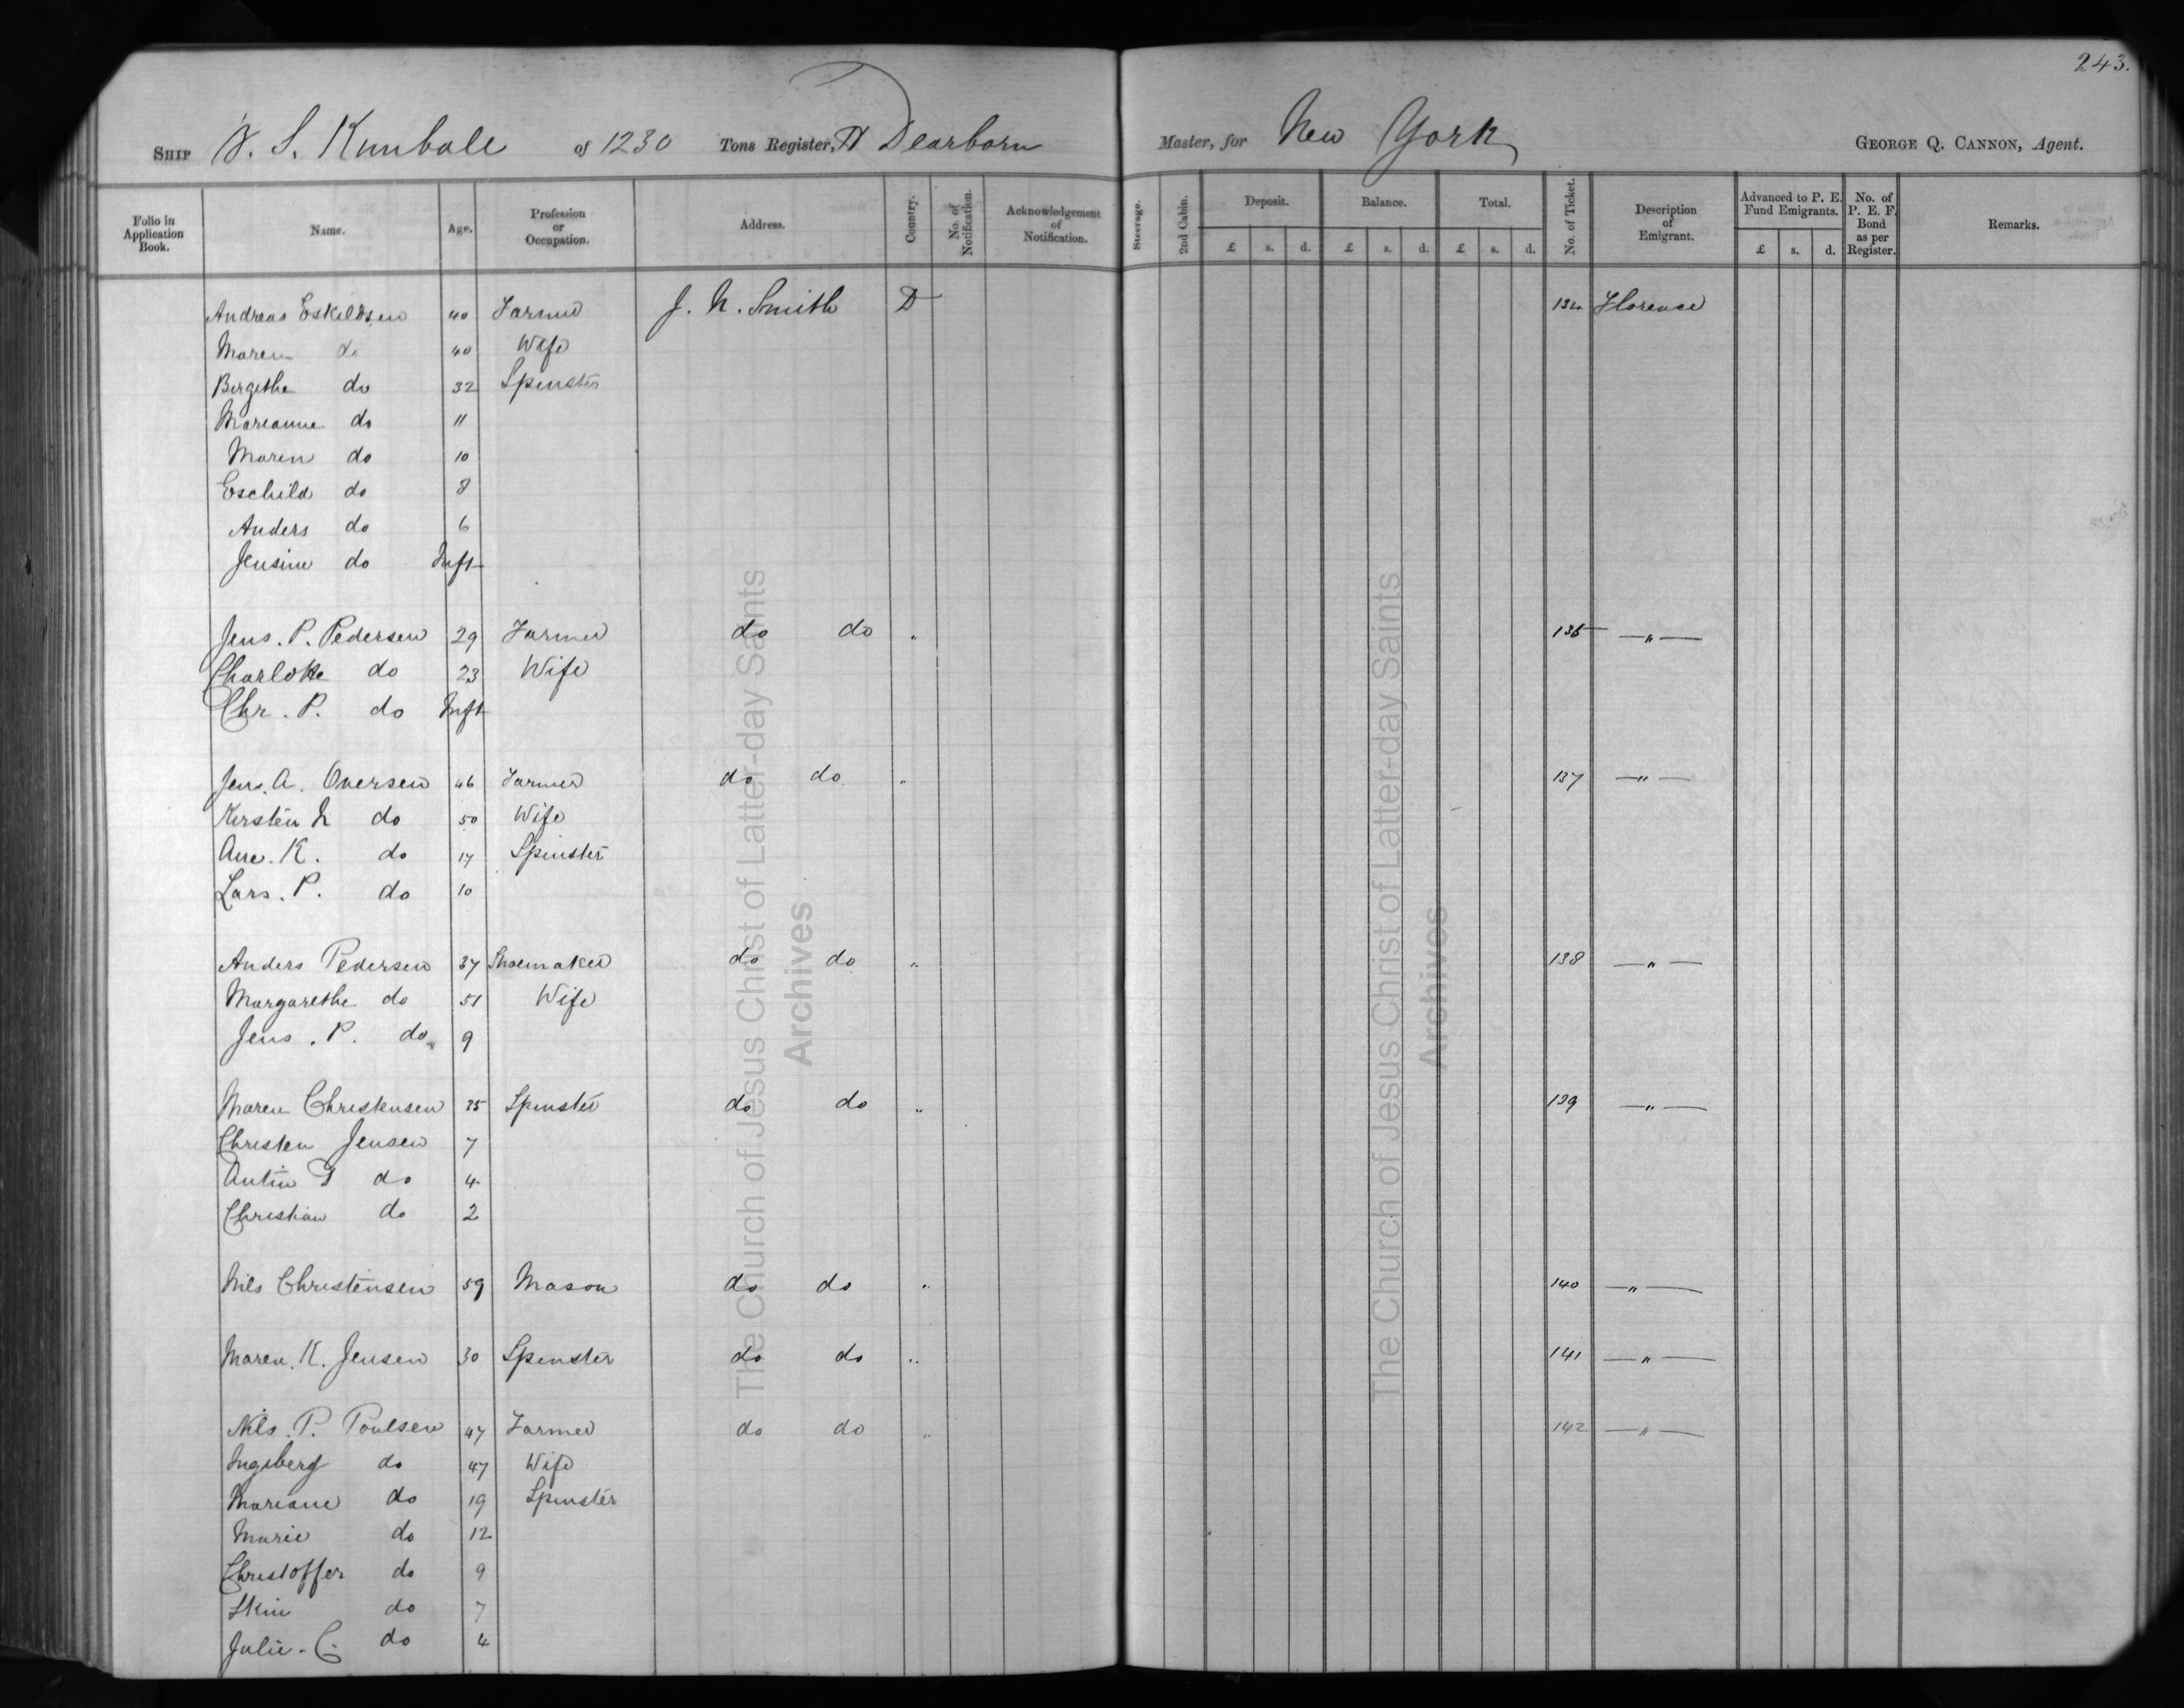 243.
SHIP B. S. Kimball of 1230 Tons Register, H Dearborn Master, for New York GEORGE Q. CANNON, Agent.
Folio in Application Book. Name. Age. Profession or Occupation. Address. Country. No. of Notification. Acknowledgement of Notification. Steerage. 2nd Cabin. Deposit. Balance. Total. No. of Ticket. Description of Emigrant. Advanced to P. E. Fund Emigrants. No. of P. E. F. Bond as per Register. Remarks.
£ s. d. £ s. d. £ s. d. £ s. d.
Andreas Eskildsen 40 Farmer J. N. Smith D 134 Florence
Maren do 40 Wife
Birgithe do 32 Spinster
Marianne do 11
Maren do 10
Eschild do 8
Anders do 6
Jensine do Inft
Jens. P. Pedersen 29 Farmer do do " 136 — " —
Charlotte do 23 Wife
Chr. P. do Inft
Jens. A. Oversen 46 Farmer do do " 137 — " —
Kirsten N do 50 Wife
Ane. K. do 17 Spinster
Lars. P. do 10
Anders Pedersen 37 Shoemaker do do " 138 — " —
Margarethe do 51 Wife
Jens. P. do 9
Maren Christensen 35 Spinster do do " 139 — " —
Christen Jensen 7
Antin do 4
Christian do 2
Nils Christensen 59 Mason do do " 140 — " —
Maren. K. Jensen 30 Spinster do do " 141 — " —
Nils. P. Poulsen 47 Farmer do do " 142 — " —
Ingeberg do 47 Wife
Mariane do 19 Spinster
Marie do 12
Christoffer do 9
Stine do 7
Julie. C. do 4
The Church of Jesus Christ of Latter-day Saints
Archives
The Church of Jesus Christ of Latter-day Saints
Archives